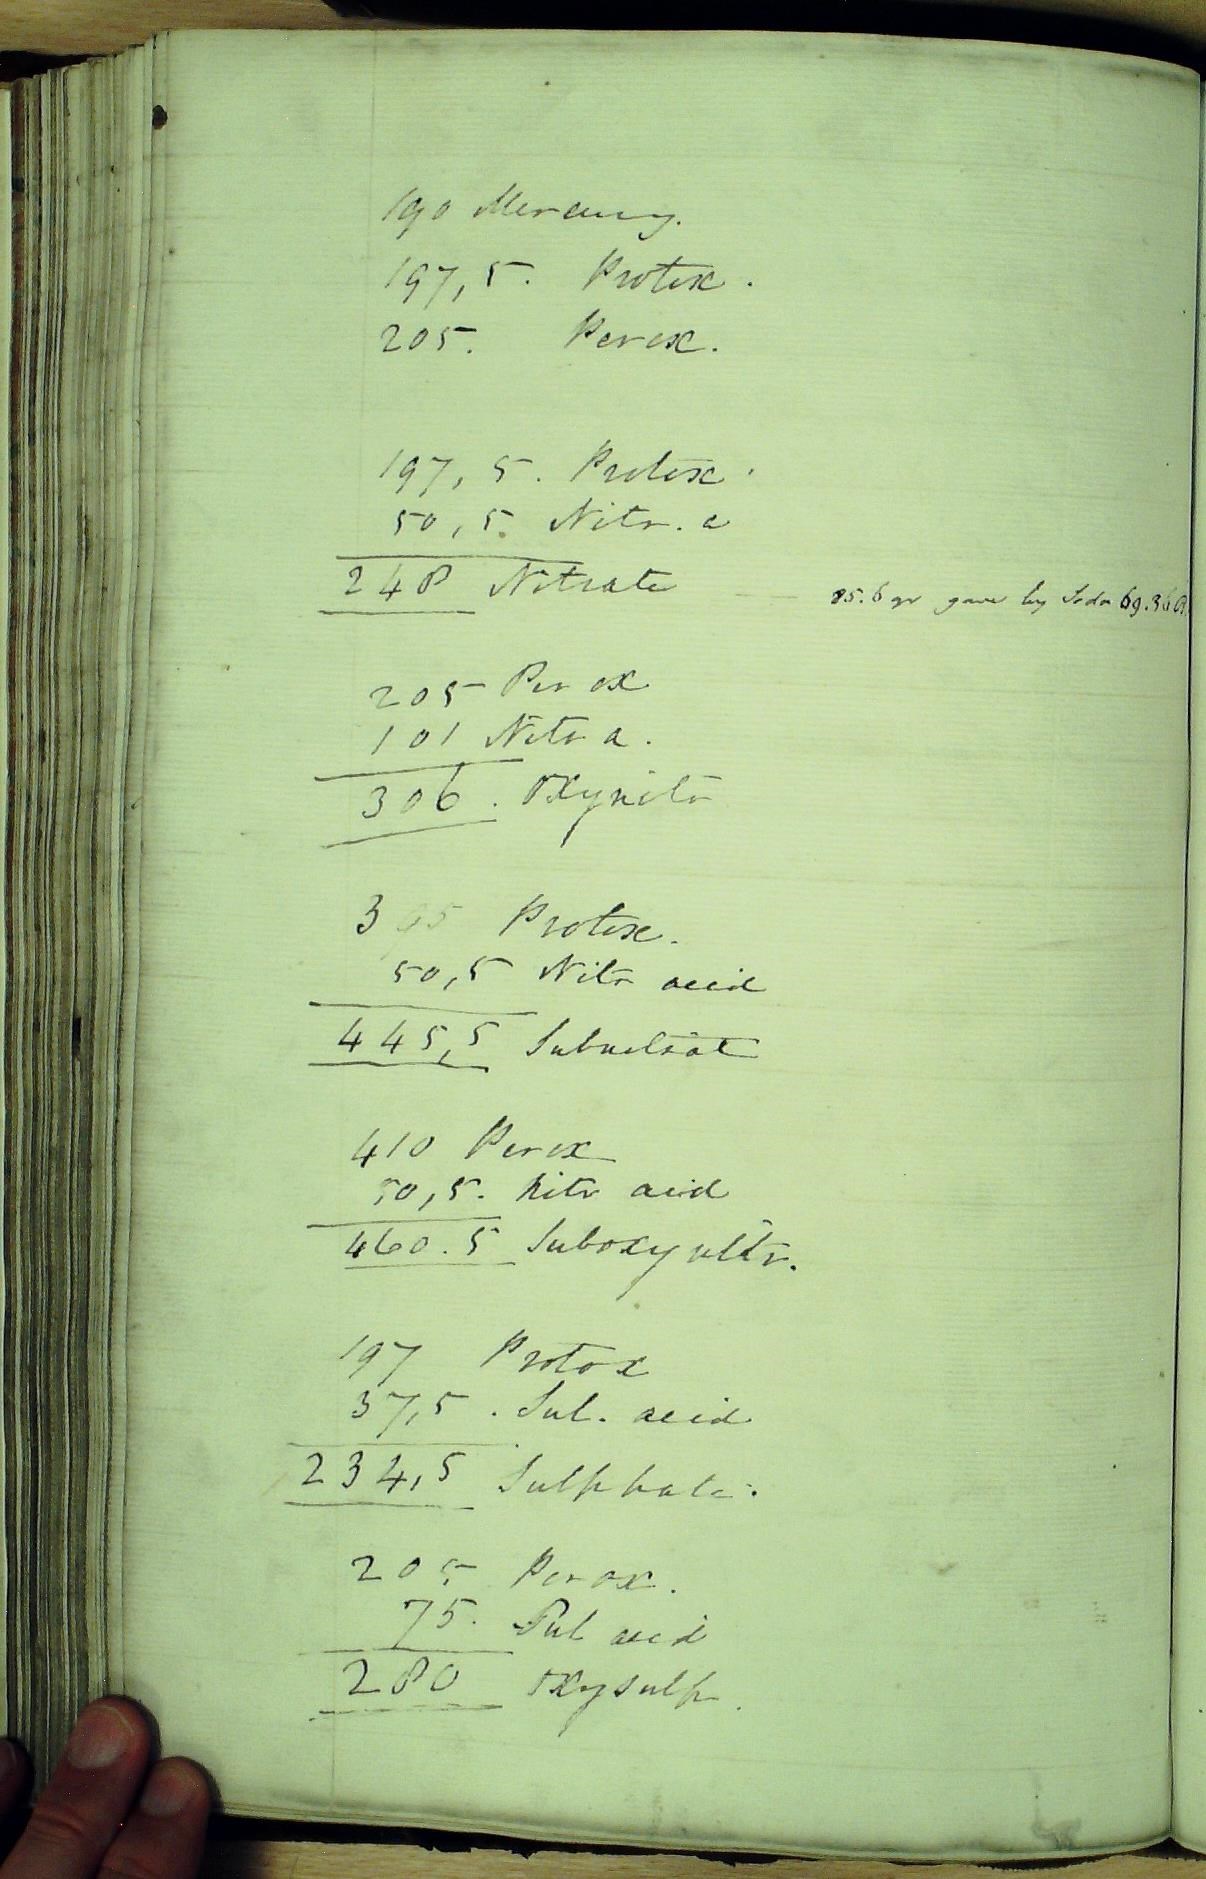 190 Mercury.
197,5. Protox.
205. Perox.
197,5. Protox.
50,5. Nitr. a
248 Nitrate
85.6 gr gave by Soda 69.36
205 Perox
101 Nitr a.
306. Oxynitr
395 Protox.
50,5 Nitr acid
445,5 Subnitrat
410 Perox
50,5. Nitr acid
460.5 Suboxynitr.
197 Protox
37,5. Sul. acid
234,5 Sulphate.
205 Perox.
75. Sul acid
280 Oxysulph.